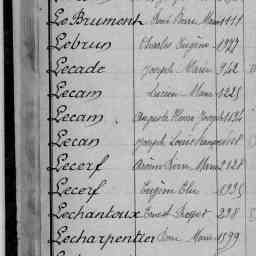 Le Brument René Pierre Marie 1411
Lebrun Charles Eugène 1927
Lecadt Joseph Marie 942
Lecam Lucien Marie 1225
Lecam Auguste Pierre Joseph 1134
Lecan Joseph Louis
Lecerf Marie 2128
Lecerf Eugène Elie 1935
Lechantoux Ernest Roger 298
Lecharpentier Marie 1399